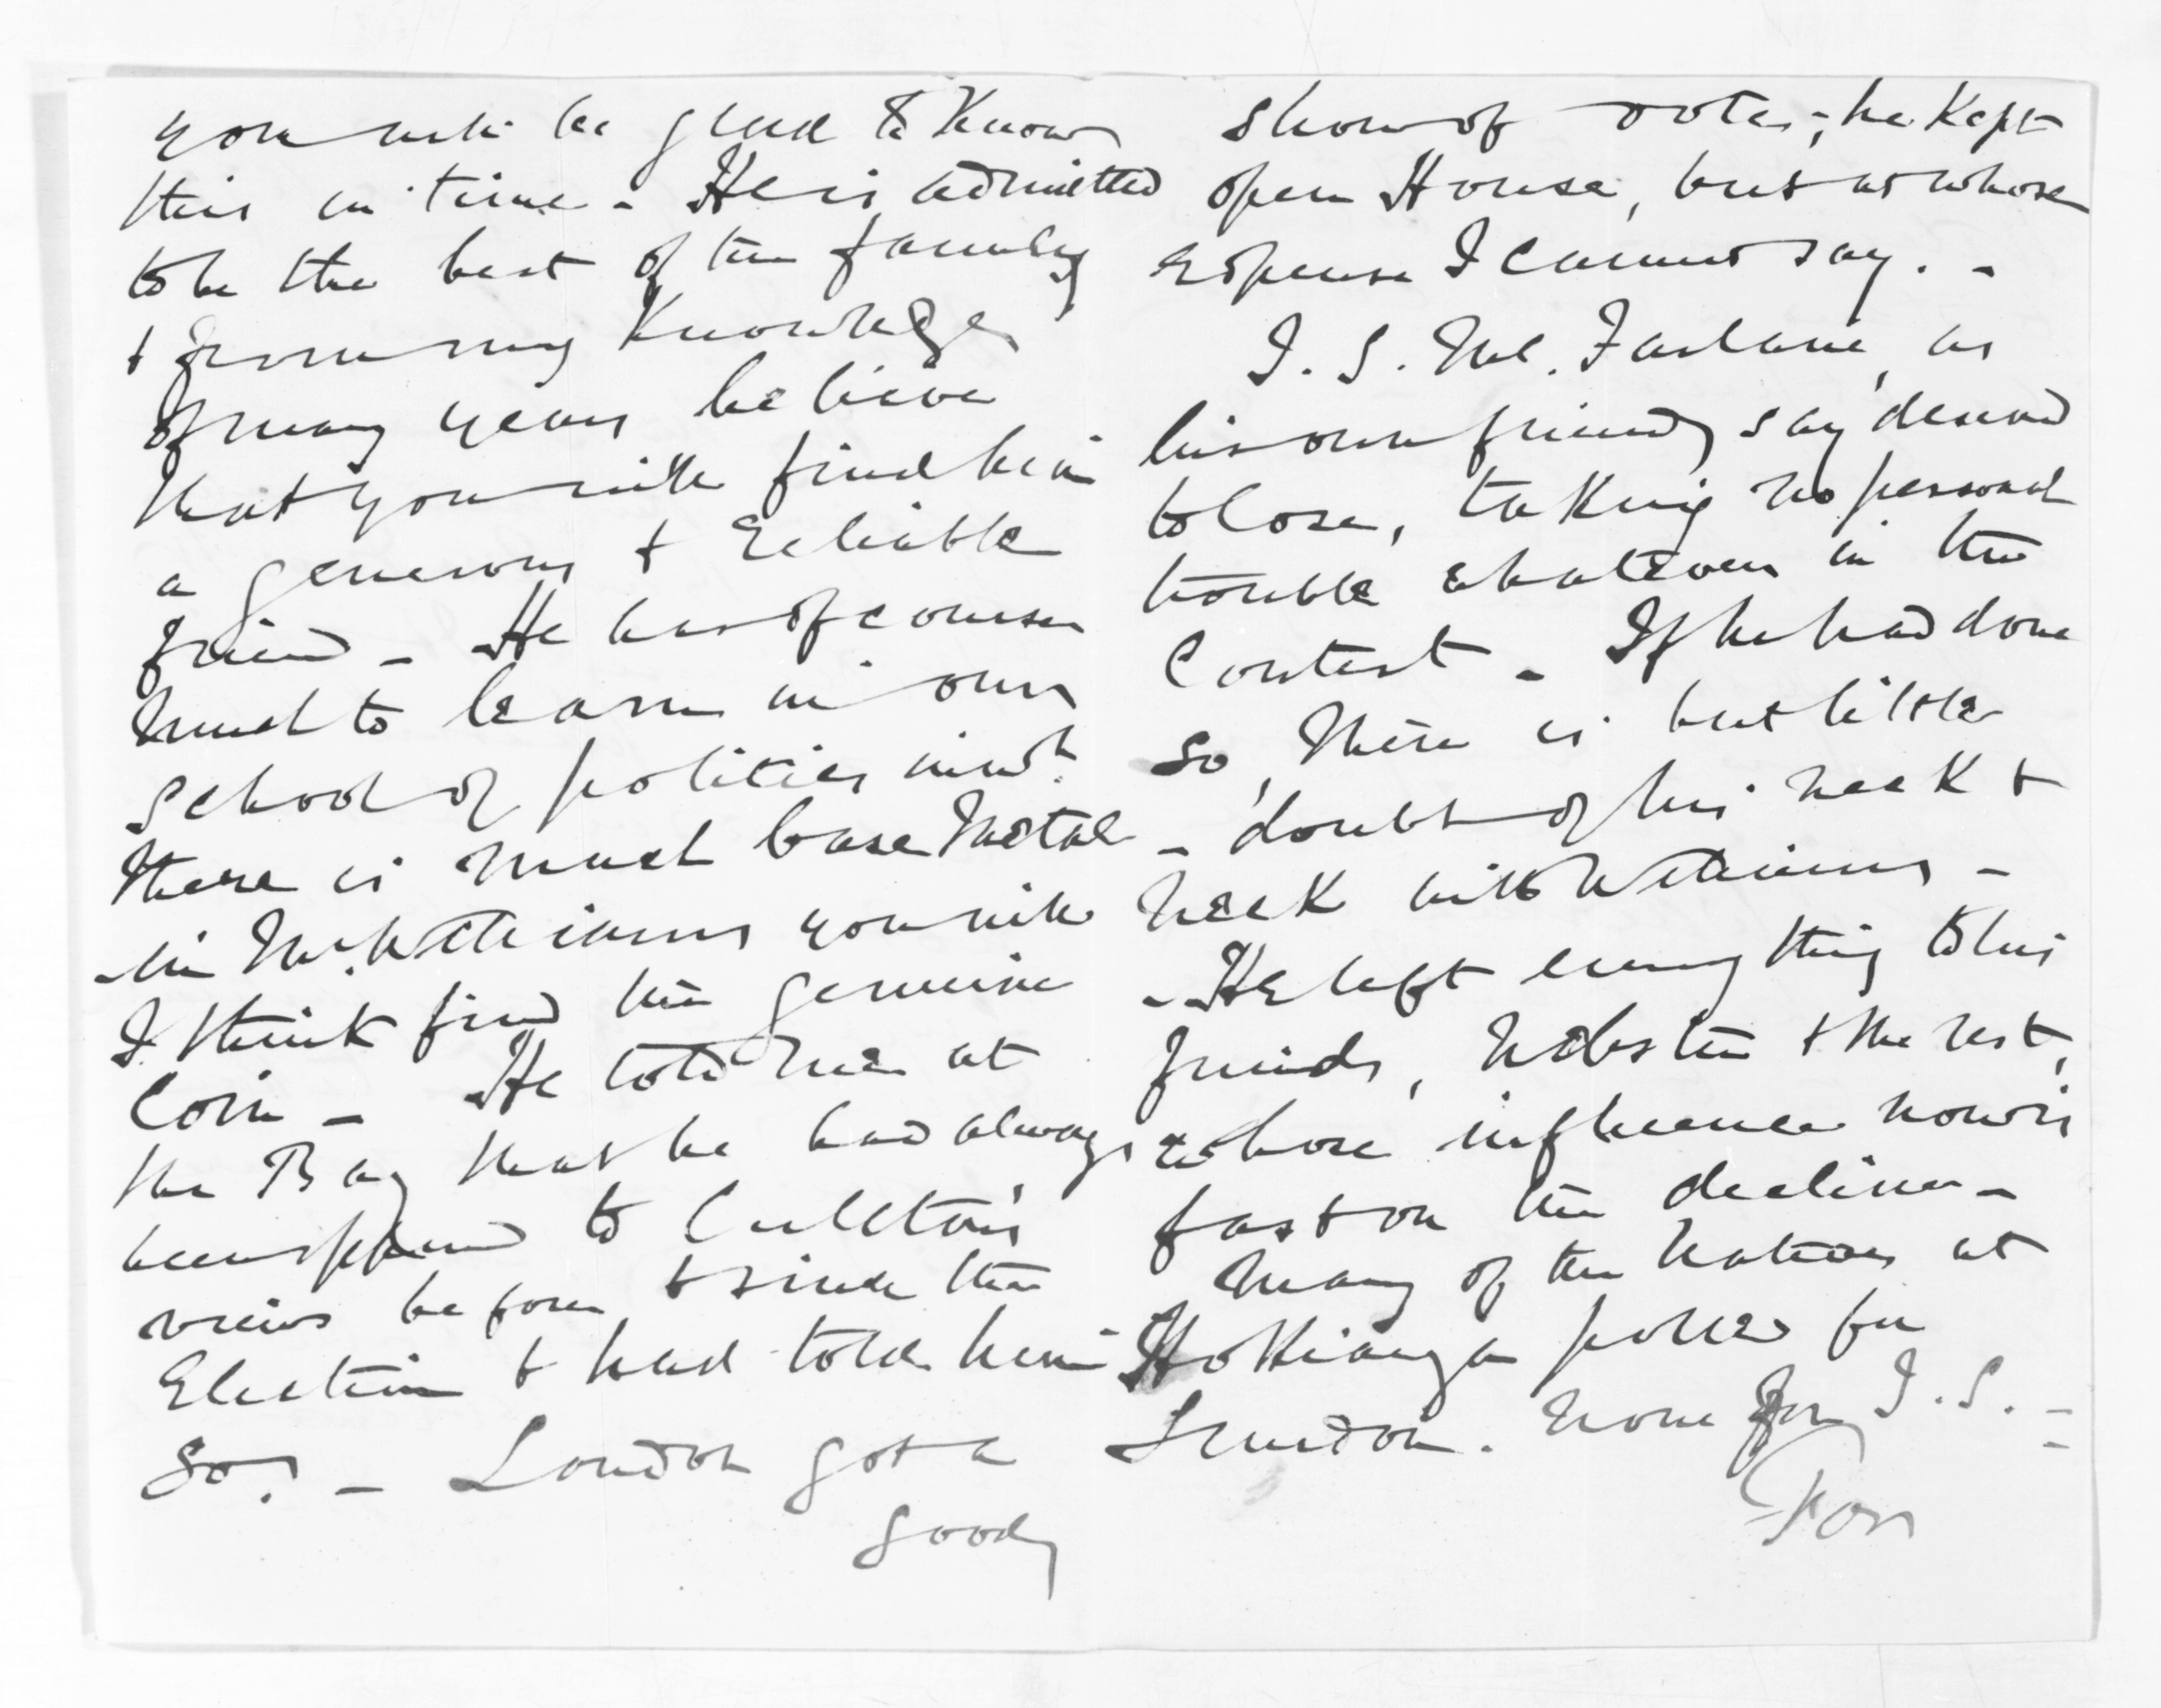 you will be glad to know
this in time - He is admitted
to be the best of the family
& from my knowledge
of many years believe
that you will find him
a generous & reliable
friend - He has of course
much to learn in our
school of politics
there is much base metal -
- in Mr. Williams you will
I think find the genuine
Coin - He told me at
the Bay that he had always
been opposed to
views before & since the
Election & had told him
so! - London got a
good
show of votes; he kept
open House, but at whose
expense I cannot say. -
J. S. McFarlane, as
his own friends say deserved
to lose, taking no personal
trouble whatever in the
Contest - If he had done
so, there is but little
doubt of his neck &
neck with Williams -
- He left everything to his
friends, Webster & the rest,
whose influence now is
fast on the decline -
Many of the natives at
Hokianga polled for
Lundon. None for J. S. -
For